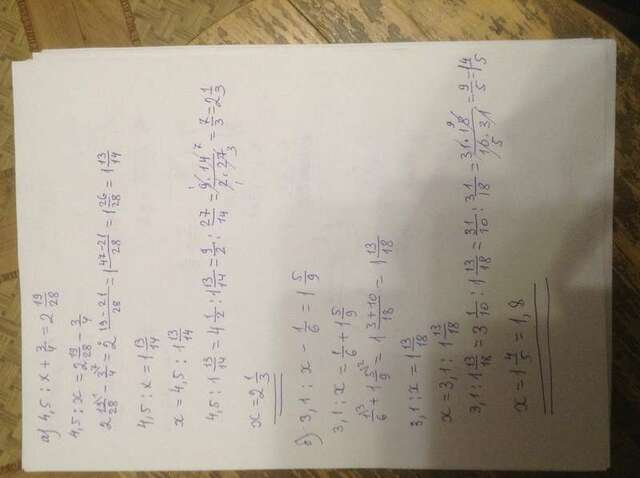 а) 4,5 : x + 3/4 = 2 19/28
4,5 : x = 2 19/28 - 3/4
2 19/28 - 3/4 = 2 (19-21)/28 = 1 (47-21)/28 = 1 26/28 = 1 13/14
4,5 : x = 1 13/14
x = 4,5 : 1 13/14
4,5 : 1 13/14 = 4 1/2 : 1 13/14 = 9/2 : 27/14 = (9·14)/(2·27) = 7/3 = 2 1/3
x = 2 1/3
б) 3,1 : x - 1/6 = 1 5/9
3,1 : x = 1/6 + 1 5/9
1/6 + 1 5/9 = 1 (3+10)/18 = 1 13/18
3,1 : x = 1 13/18
x = 3,1 : 1 13/18
3,1 : 1 13/18 = 3 1/10 : 1 13/18 = 31/10 : 31/18 = (31·18)/(10·31) = 9/5 = 1 4/5
x = 1 4/5 = 1,8